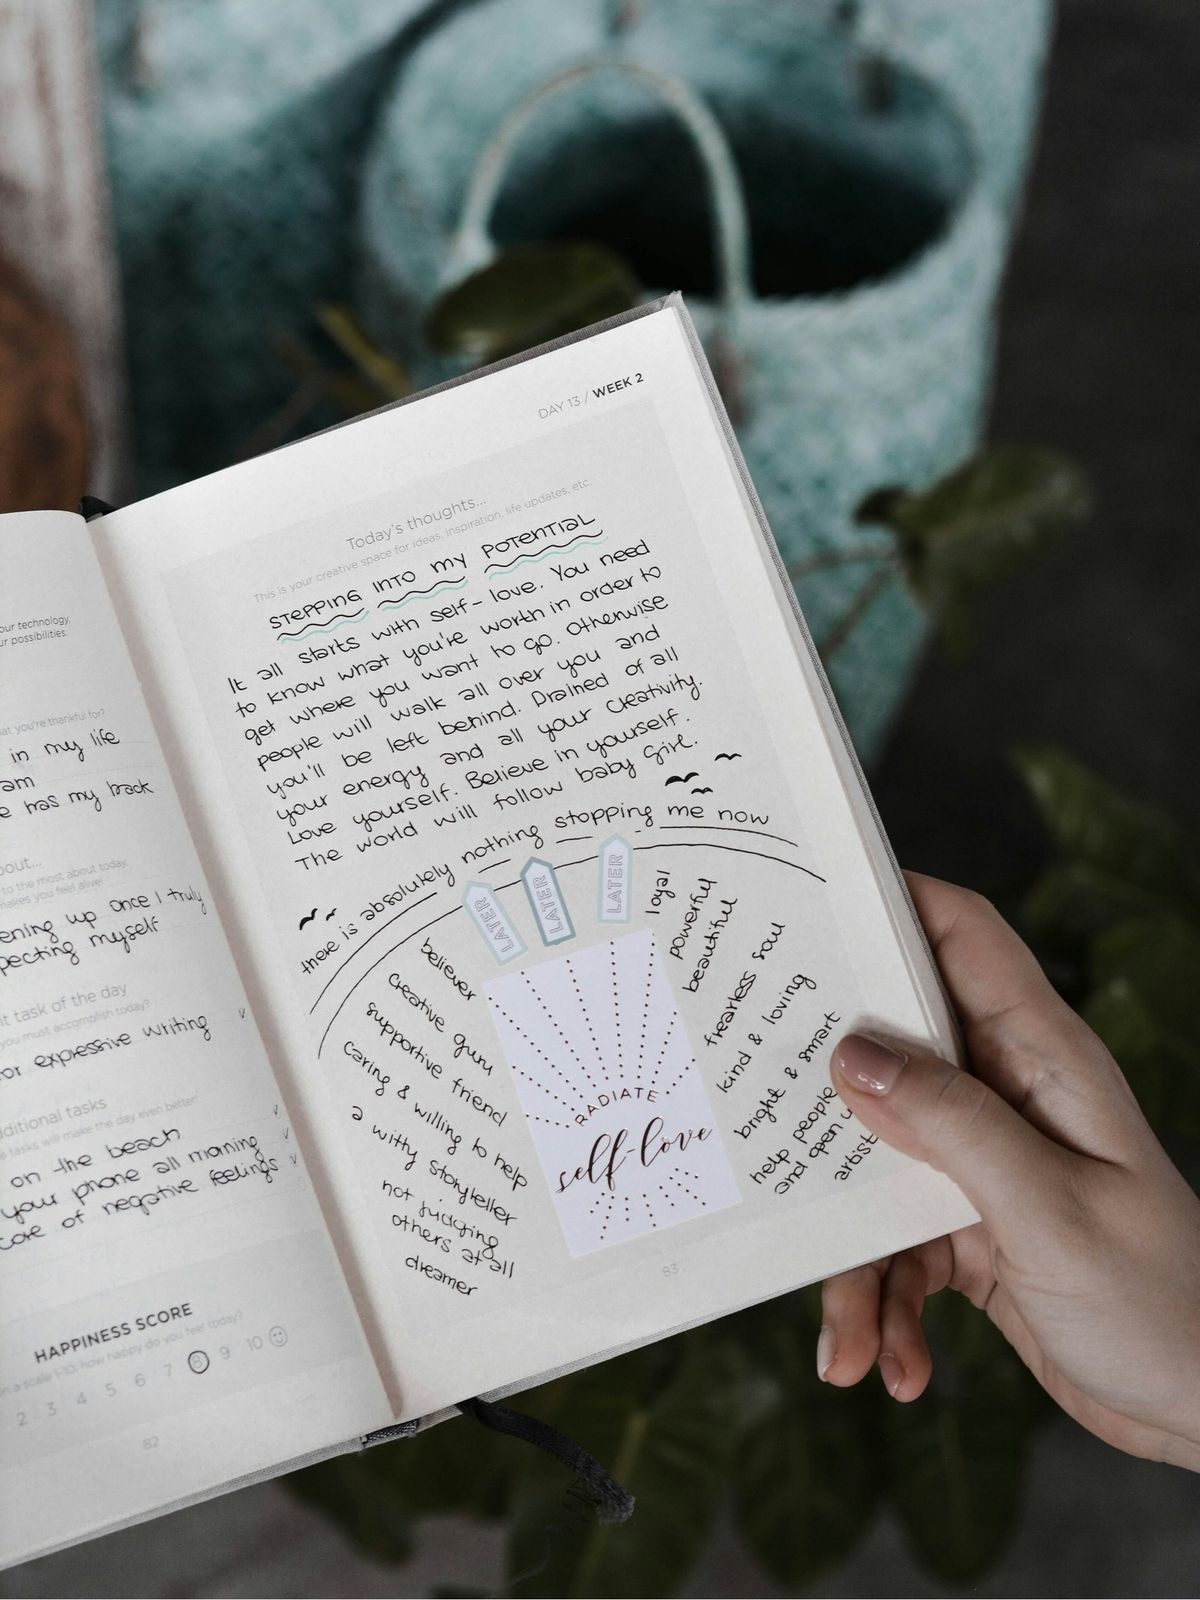 our technology,
ur possibilities.
at you're thankful for?
in my life
am
e has my back
bout...
to the most about today
makes you feel alive!
ening up once I truly
pecting myself
it task of the day
you must accomplish today?
or expressive writing
dditional tasks
e tasks will make the day even better!
on the beach
your phone all morning
care of negative feelings
HAPPINESS SCORE
on a scale 1-10, how happy do you feel today?
2 3 4 5 6 7 8 9 10
82
DAY 13 / WEEK 2
Today's thoughts...
This is your creative space for ideas, inspiration, life updates, etc.
STEPPING INTO MY POTENTIAL
It all starts with self-love. You need
to know what you're worth in order to
get where you want to go. Otherwise
people will walk all over you and
you'll be left behind. Drained of all
your energy and all your creativity.
Love yourself. Believe in yourself.
The world will follow baby girl.
there is absolutely nothing stopping me now
LATER
LATER
LATER
believer
creative guru
supportive friend
caring & willing to help
a witty storyteller
not judging
others at all
dreamer
RADIATE
self-love
loyal
powerful
beautiful
fearless soul
kind & loving
bright & smart
help people
and open u
artist
83